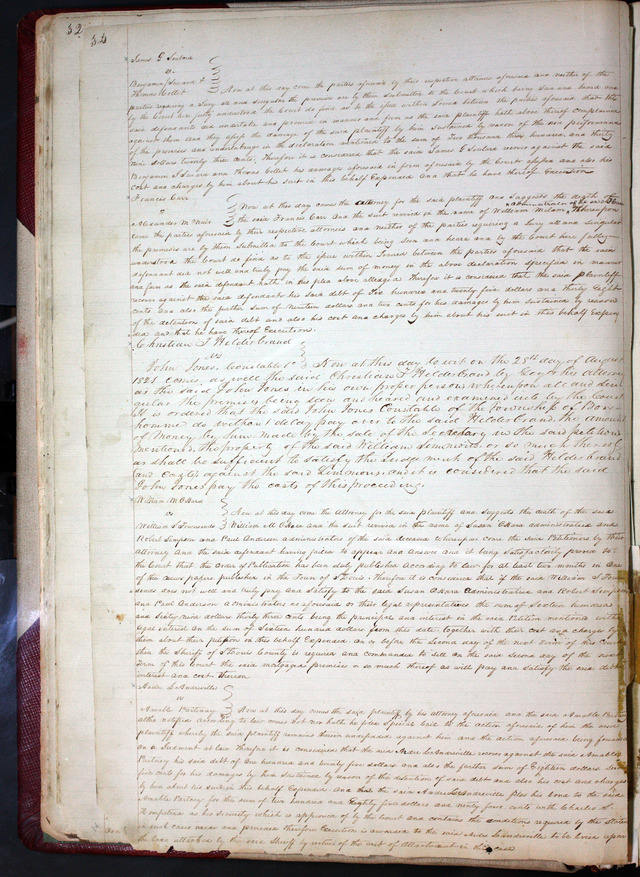 52
54
James G Soulard
vs
Benjamin J Seward &
Thomas Collet } Now at this day come the parties aforesaid by their respective attornies aforesaid and neither of the
parties requiring a Jury all and singular the premises are by them submitted to the Court which being seen and heard and
by the Court here fully understood the Court do find as to the issue within Joined between the parties aforesaid that the
said defendants did undertake and promise in manner and form as the said plaintiff hath above thereof complained
against them and they assess the damage of the said plaintiff by him sustained by reason of the non performance
of the promises and undertakings in the declaration mentioned to the sum of Two thousand three hundred and thirty
nine dollars twenty three cents, Therefore it is considered that the said James G Soulard recover against the said
Benjamin J Seward and Thomas Collet his damages aforesaid in form aforesaid by the Court assessed and also his
cost and charges by him about his suit in this behalf Expended and that he have thereof Execution
Francis Carr
vs
Alexander McNair } Now at this day comes the attorney for the said plaintiff and suggests the death of
the said Francis Carr and the suit revived in the name of William Milburn administrator Whereupon
come the parties aforesaid by their respective attornies and neither of the parties requiring a Jury all and singular
the premises are by them Submitted to the Court which being seen and heard and by the Court here fully
understood the Court do find as to the issue within Joined between the parties aforesaid that the said
defendant did not well and truly pay the said sum of money in the above declaration specified in manner
and form as the said defendant hath in his plea above alledged. Therefore it is considered that the said plaintiff
recover against the said defendant his said debt of Five hundred and twenty five dollars and thirty Eight
cents and also the further sum of Nineteen dollars and two cents for his damages by him sustained by reason
of the detention of said debt and also his cost and charges by him about his suit in this behalf Expended
and that he have thereof Execution.
Christian T Helderbrand
vs
John Jones Constable &c } Now at this day to wit on the 28th day of August
1821 comes as well the said Christian T Helderbrand by his Attorney
as the said John Jones in his own proper person whereupon all and sin-
gular the premises being seen and heard and examined into by the Court
It is ordered that the said John Jones Constable of the township of Bon-
homme do without delay pay over to the said Helderbrand, the amount
of Money by him made by the sale of the in the said petition
mentioned, the property of the said William Simmonds or so much thereof
as shall be sufficient to satisfy the Judgement of the said Helderbrand
and Costs against the said Simmons, and it is considered that the said
John Jones pay the costs of this proceeding.
William M OHara
vs
William S Townsend } Now at this day come the Attorney for the said plaintiff and suggests the death of the said
William M OHara and the suit revived in the name of Susan OHara administratrix and
Robert Simpson and Paul Anderson administrators of the said deceased Whereupon come the said Petitioners by their
Attorney and the said defendant having failed to appear and Answer and it being Satisfactorily proved to
the Court that the Order of Publication has been duly published According to Law for at least two months in one
of the news papers published in the Town of St Louis Therefore it is considered that if the said William S Town-
send does not well and truly pay and Satisfy to the said Susan OHara Administratrix and Robert Simpson
and Paul Anderson administrators as aforesaid or their legal representatives the sum of Sixteen hundred
and Sixty Nine dollars thirty three cents being the principal and interest in the said Petition mentioned with
legal interest on the sum of Sixteen hundred dollars from this date together with their cost and charges by
them about their petition in this behalf Expended on or before the Second day of the next Term of this Court
then the Sheriff of St Louis County is required and commanded to sell on the said Second day of the next
Term of this Court the said mortgaged premises or so much thereof as will pay and Satisfy the said debt
interest and cost thereon
Andre L Andreville
vs
Amable Partenay } Now at this day comes the said plaintiff by his attorney aforesaid and the said Amable Partenay
altho notified according to law comes not nor hath he plead Special bail to the action aforesaid of him the said
plaintiff whereby the said plaintiff remains therein undefended against him and the action aforesaid being founded
on a Judgment at law Therefore it is considered that the said Andre L Andreville recover against the said Amable
Partenay his said debt of One hundred and twenty five dollars and also the further sum of Eighteen dollars
five cents for his damages by him Sustained by reason of the detention of said debt and also his cost and charges
by him about his suit in this behalf Expended. And the said Andre L Andreville files his bond to the said
Amable Partenay for the sum of two hundred and Eighty five dollars and ninety four cents with Charles S
Hempstead as his Security which is approved of by the Court and contains the conditions required by the Statute
in such cases made and provided Therefore Execution is awarded to the said Andre L Andreville to be levied upon
the land attached by the said Sheriff by virtue of the writ of Attachment in this case